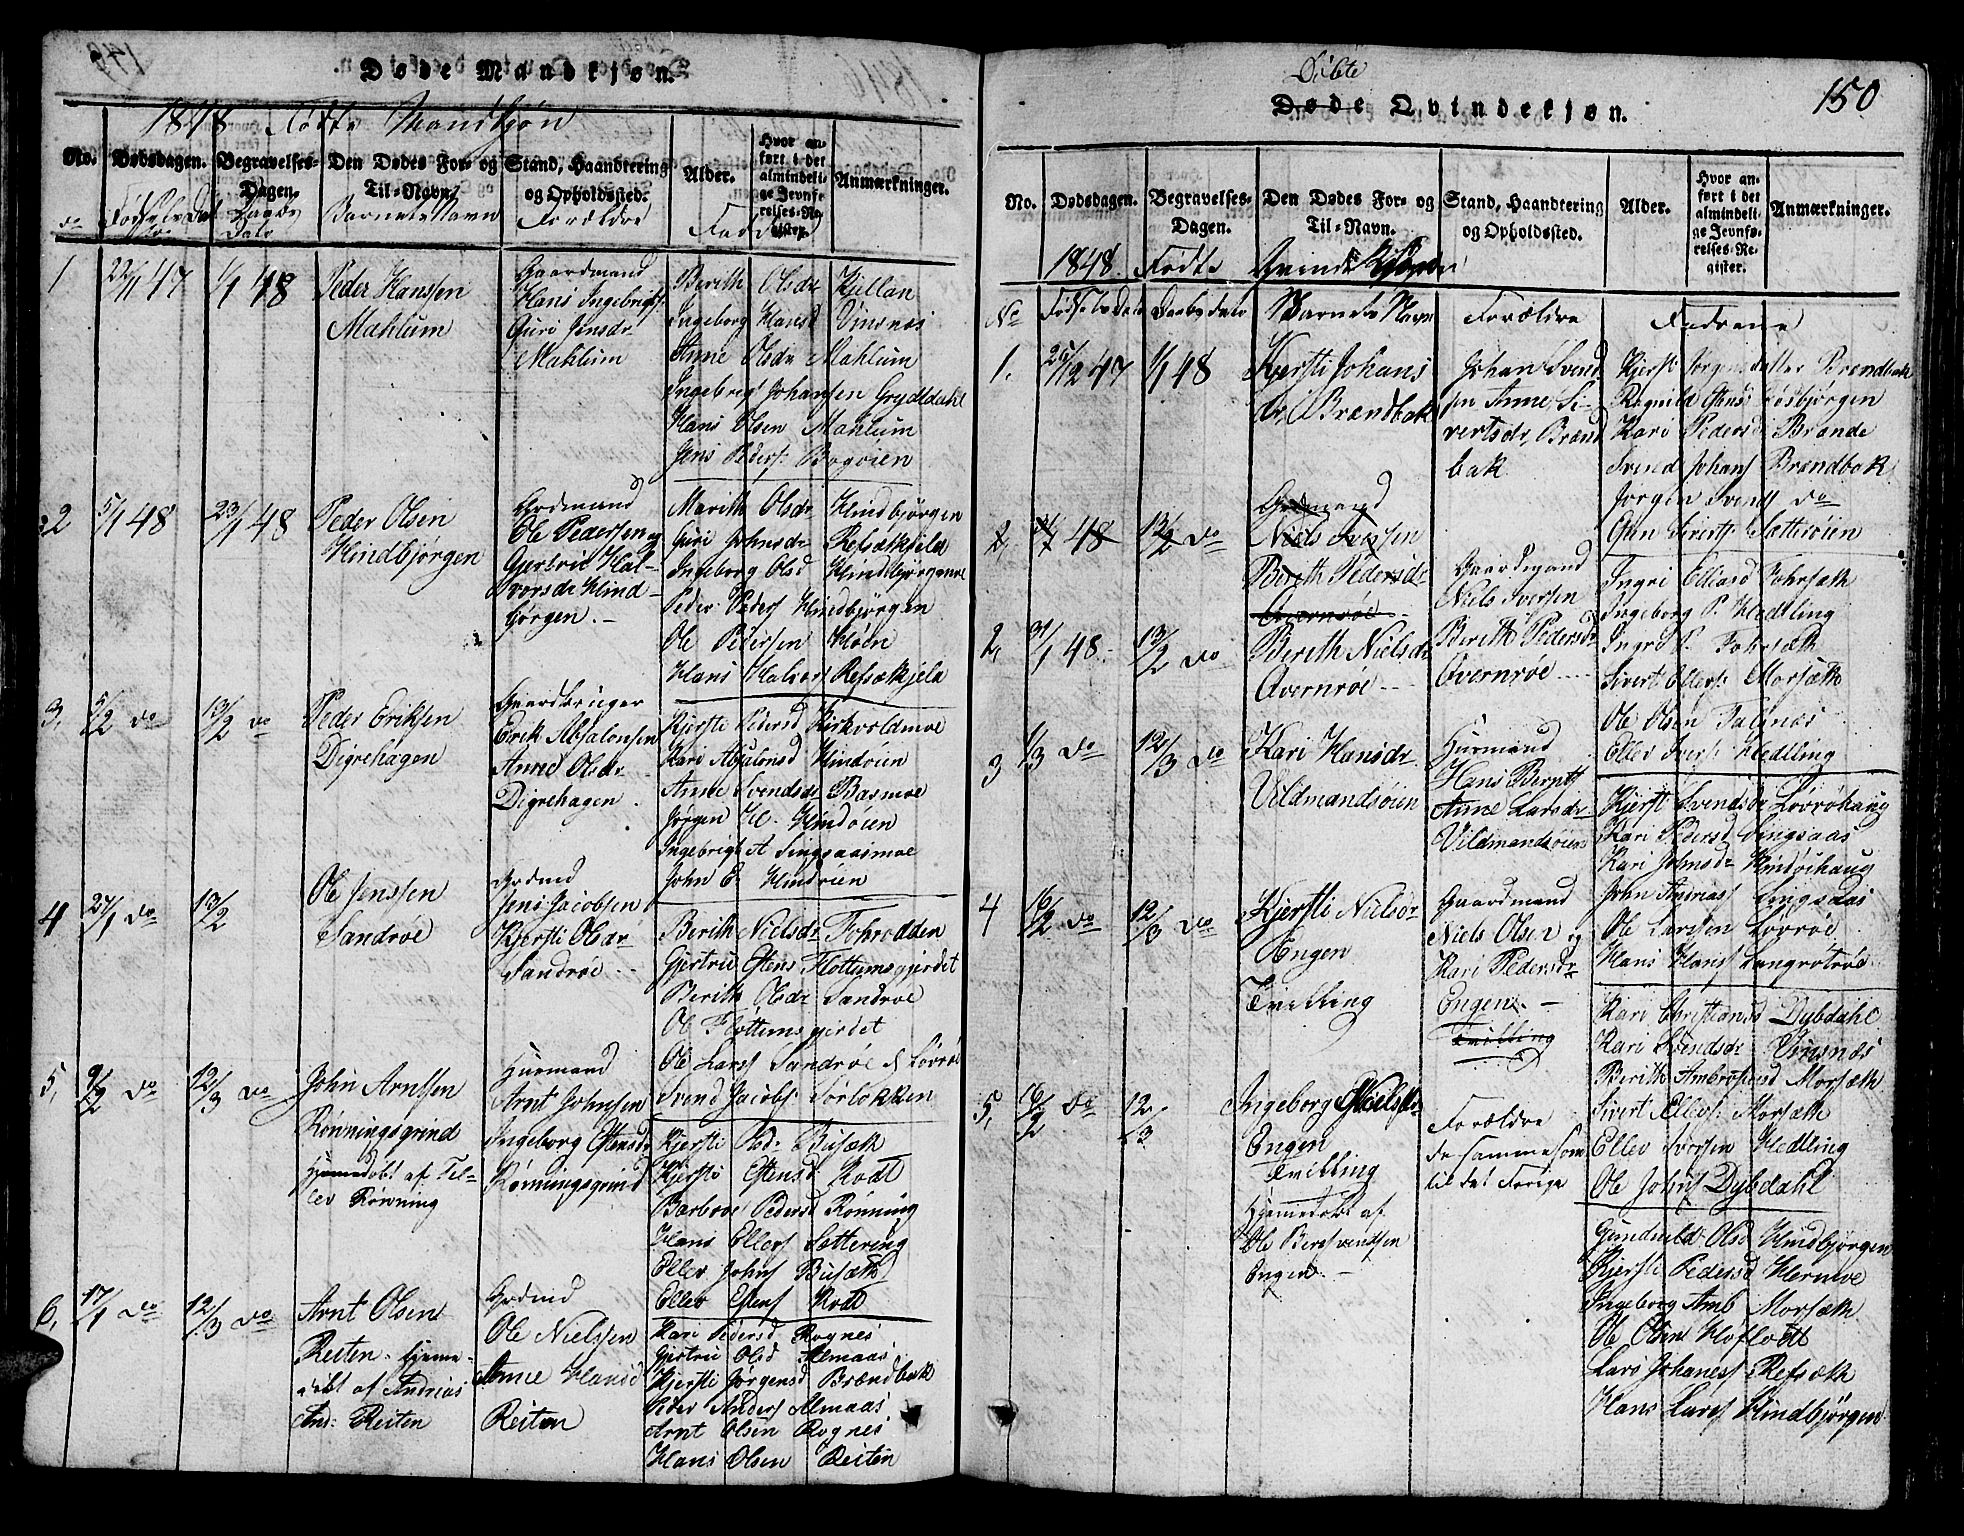 Døde Mandkjøn.
1848 Fødte Mandkjøn
No. Dødsdagen. Begravelses-Dagen. Den Dødes For- og Til-Navn. Stand, Haandtering og Opholdssted. Alder. Hvor anført i det almindelige Jevnførelses-Register. Anmærkninger.
Barnets Navn Forældre
1 22/11 47 1/1 48 Peder Hanssen
Mahlum
Gaardmand
Hans Ingebrigts.
Guri Jensdr
Mahlum
Berith Olsdr Kjellan
Ingeborg Hansd Vinsnes
Anne Olsdr Mahlum
Ingebrigt Johansen Gryttdahl
Hans Olsen Mahlum
Jens Peders. Bogøien
2 5/1 48 23/1 48 Peder Olsen
Hindbjørgen
Grdmand
Ole Pedersen og
Gjertrui Hal-
vorsdr Hind-
bjørgen.
Marith Olsdr Hindbjørgen
Guri Johnsdr Refsætkjeln
Ingeborg Olsd Hindbjørgmoe
Peder Peders Hindbjørgen
Ole Pedersen Moen
Hans Halvors Refsætkjeln
3, 5/2 do 13/2 do Peder Eriksen
Digrehagen
Gaardbruger
Erik Absalonsen
Anne Olsdr
Digrehagen
Kjersti Pedersd Kirkvoldmoe
Kari Absalonsd Hindøien
Anne Svendsdr Basmoe
Jørgen Hindøien
Ingebrigt A Singsaasmoe
John E. Hindøien
4 27/1 do 13/2 Ole Jenssen
Sandrøe
Grdmd
Jens Jacobsen
Kjersti Olsdr
Sandrøe
Berith Nielsdr Fohrodden
Gjertrui Estens Flottumsgjerdet
Berith Olsdr Sandroe
Ole Flottumsgjerdet
Ole Larss Sandrøe
Svend Jacobs. Sørløkken
5, 9/2 do 12/3 do John Arntsen
Rønningsgrind
Hjemedøbt af El-
lev Rønning
Huusmand
Arnt Johnsen
Ingeborg Estensdr
Rønningsgrind
Kjersti Olsdr Busæth
Kjersti Estensd Kodt
Barbroe Pedersd Rønning
Hans Ellers Sættering
Eller Johns Busæth
Eller Estens Kodt
6, 17/1 do 12/3 do Arnt Olsen
Reiten. hjeme-
døbt af Andrias
Reiten
Grdmd
Ole Nielsen
Anne Hansd
Reiten
Kari Pedersd Rognes
Gjertrui Olsd Almaas
Kjersti Jørgensd Brændbak
Peder Anders Almaas
Arnt Olsen Rognes
Hans Olsen Reiten
150
Døbte
Døde Qvindekjøn.
No. Dødsdagen. Begravelses-Dagen. Den Dødes For- og Til-Navn. Stand, Haandtering og Opholdssted. Alder. Hvor anført i det almindelige Jevnførelses-Register. Anmærkninger.
1848 Fødte Qvindekjøn
No Fødselsdato Daabsdato Barnets Navn Forældre Faderne
1. 25/12 47 1/1 48 Kjersti Johans
dr. Brændbak
Johan Svend-
sen Anne Si-
vertsdr Brænd
bak
Kjersti Jørgensdatter Brændbak
Ragnild Estens Løsbjørgen
Kari Pedersd Brande
Svend Johans Brændbak
Jørgen Svends do
Siverts. Sætterøien
2, 48 13/2 do
Grdmand
Niels Iversen
Berith Pedersdr
Avernrøe
2, 31/1 48. 13/2 do Berith Nielsdr
Avernrøe
Gaardmand
Niels Iversen
Berith Pedersdr
Avernrøe
Ingri Elliasd Fohrsæth
Ingeborg P. Hedtling
Ingri P. Fohrsæth
Sivert Ellers. Morsæth
Ole Olsen Talgnæs
Eller Ivers. Hedtling
3 1/3 do 12/3 do Kari Hansdr
Vildmandsøien
Husmand
Hans Berntt
Anne Larsdr
Vildmandsøien
Kjersti Svendsdr Løvrøhaug
Kari Pedersd Singsaas
Kari Johnsdr Hindøihaug
John Andrias Singsaas
Ole Larssen Løvrøe
Hans Hans Langrotrøe
4 16/2 do 12/3 do Kjersti Nielsdr
Engen
Tvilling
Gaardmand
Niels Olsen og
Kari Pedersdr
Engen.
Tvilling
Kari Christiansd Dybdahl
Kari Svendsdr Vinsnæs
Berith Ambrosiusd Morsæth
Sivert Ellers. Morsæth
Eller Iversen Hedtling
Ole Johns Dybdahl
5, 16/2 do 12/3 Ingeborg Nielsdr
Engen
Tvilling
Hjemedøbt af
Ole Berssvendsen
Engen.
Forældre
de samme som
til det Forige
Gunhild Olsd Hindbjørgen
Kjersti Pedersd Hernmoe
Ingeborg Amb Morsæth
Ole Olsens Hoflodt
Lars Johanss Refsæth
Hans Larss Hindbjørgen